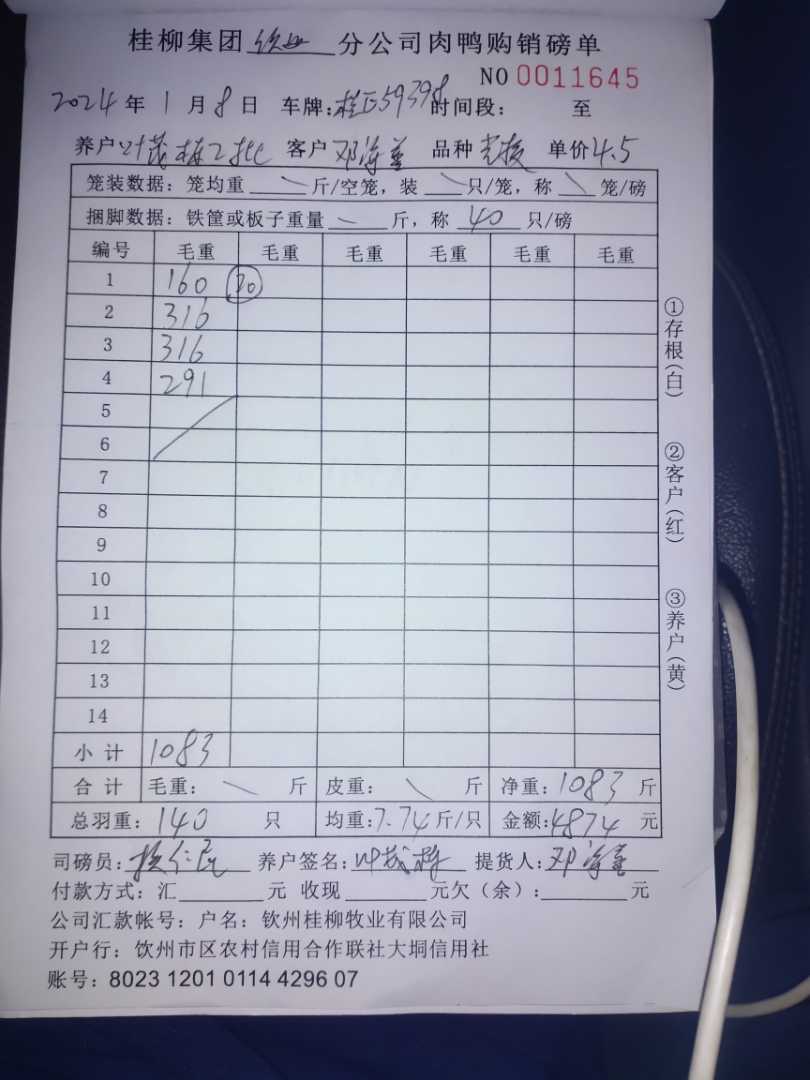 桂柳集团 牧业 分公司肉鸭购销磅单
NO 0011645
2024 年 1 月 8 日 车牌:桂D59398 时间段: 至
养户 叶茂梅2批 客户 邓海 品种 单价 4.5
笼装数据:笼均重 \ 斤/空笼,装 \ 只/笼,称 \ 笼/磅
捆脚数据:铁筐或板子重量 \ 斤,称 40 只/磅
编号 毛重 毛重 毛重 毛重 毛重 毛重
1 160 20
2 316
3 316
4 291
5
6
7
8
9
10
11
12
13
14
小 计 1083
合 计 毛重: \ 斤 皮重: \ 斤 净重:1083 斤
总羽重:140 只 均重:7.74 斤/只 金额:4874 元
司磅员: 养户签名:叶茂梅 提货人:邓海
付款方式:汇 元 收现 元欠(余): 元
公司汇款帐号:户名:钦州桂柳牧业有限公司
开户行:饮州市区农村信用合作联社大垌信用社
账号:8023 1201 0114 4296 07
①存根(白)
②客户(红)
③养户(黄)